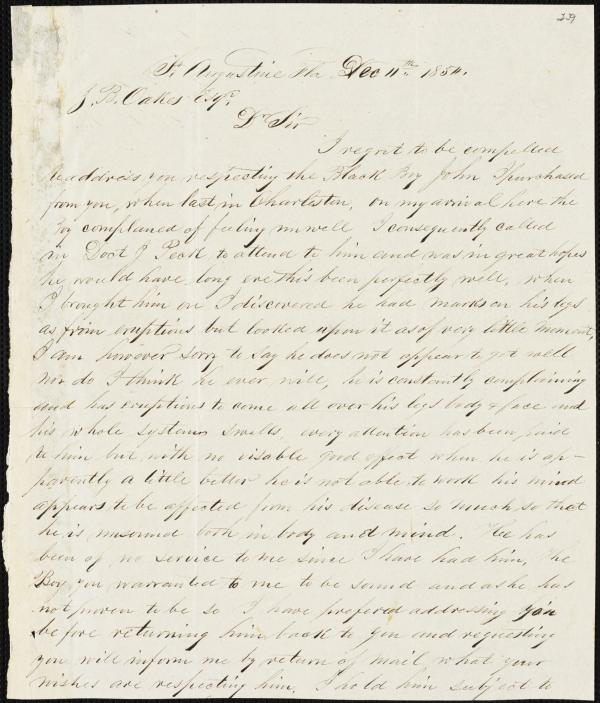 239
St. Augustine Fla Dec 11th 1854.
Z. B. Oakes Esqr.
Dr Sir
I regret to be compelled
to address you respecting the Black Boy John I purchased
from you, when last in Charleston, on my arrival here the
Boy complained of feeling unwell I consequently called
in Doct J Peck to attend to him and was in great hopes
he would have long ere this been perfectly well, when
I brought him on I discovered he had marks on his legs
as from eruptions but looked upon it as of very little moment,
I am however sorry to say he does not appear to get well
nor do I think he ever will, he is constantly complaining
and has eruptions to come all over his legs body & face and
his whole system swells, every attention has been paid
to him but with no visable good effect when he is ap-
parently a little better he is not able to work his mind
appears to be affected from his disease so much so that
he is unsound both in body and mind. He has
been of no service to me since I have had him, the
Boy you warranted to me to be sound and as he has
not proven to be so I have prefered addressing you
before returning him back to you and requesting
you will inform me by return of mail what your
wishes are respecting him, I hold him subject to